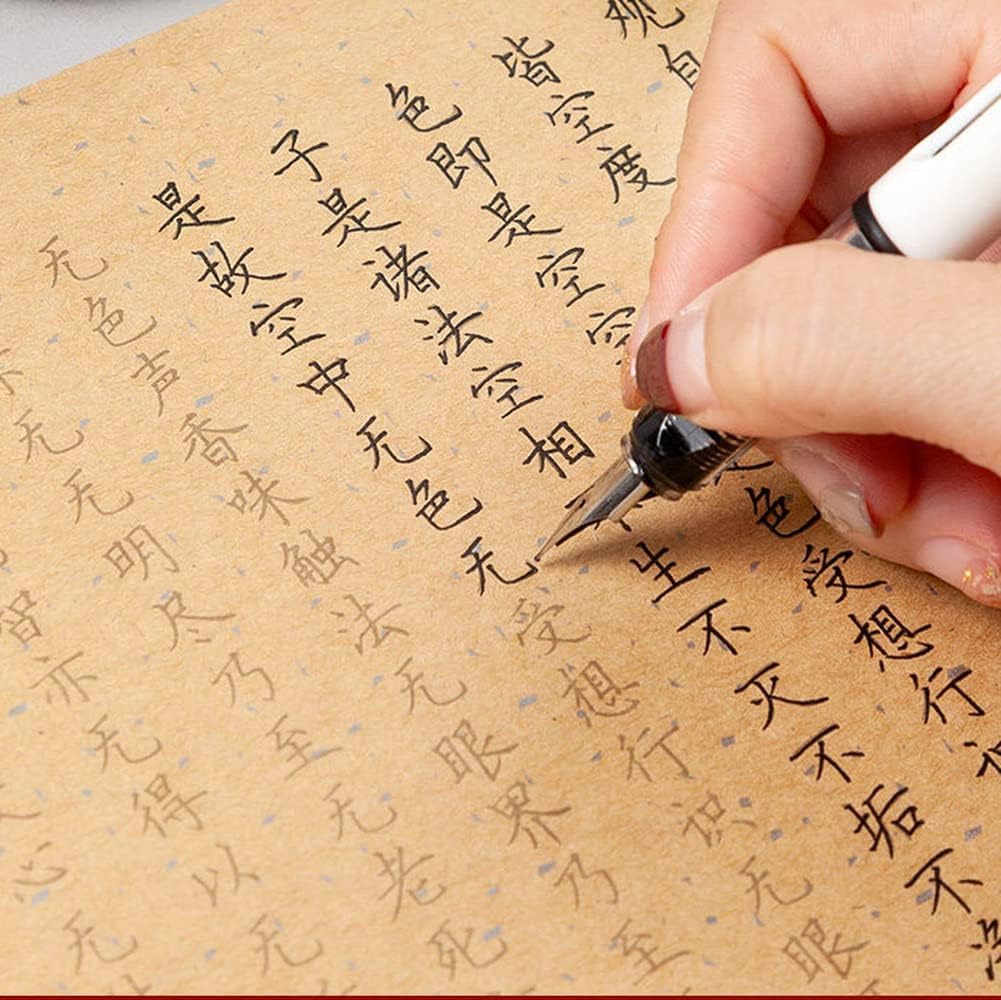 观自
皆空度
色即是空空色受想行
子是诸法空相不生不灭不垢不净
是故空中无色无受想行识无眼
无色声香味触法无眼界乃至
无无明尽乃至无老死
智亦无得以无
心无